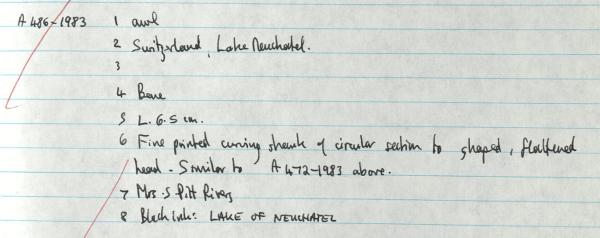 A 486-1983 1 awl
2 Switzerland, Lake Neuchatel.
3
4 Bone
5 L. 6.5 cm.
6 Fine pointed curving shank of circular section to shaped, flattened
head. Similar to A 472-1983 above.
7 Mrs. S Pitt Rivers
8 Black ink: LAKE OF NEUCHATEL